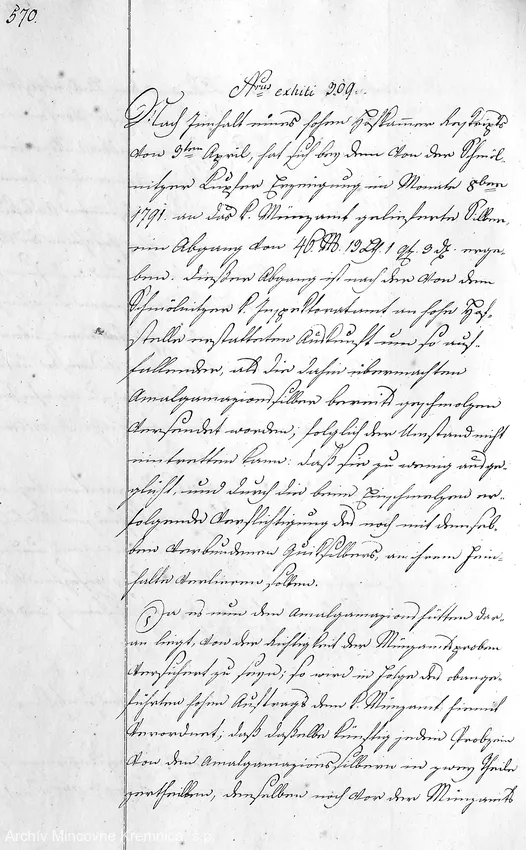 570.
Nrus exhiti 209.
Nach Innhalt eines hohen Hofkammer Reskripts
von 3ten April, hat sich bey dem von der Schmöl-
nitzer Kupfer Erzeigung im Monate 8ber
1791. an das k. Münzamt gelieferte Silber,
ein Abgang von 46 M. 13 Lt. 1 q. 3 d. erge-
ben. dieser Abgang ist nach der von dem
Schmölnitzer k. Inspektoratamt an hohe Hof-
stelle erstatteten Auskunft um so auf-
fallender, als die dahin übermachten
Amalgamazionssilber bereits geschmolzen
versendet worden, folglich der Umstand nicht
eintretten kann: daß sie zu wenig ausge-
glüht, und durch die beim Einschmelzen er-
folgende Verflüchtigung des noch mit demsel-
ben verbundenen Quiksilbers, an ihrem Hein-
halte verlieren sollten.
Da es nun den Amalgamazionshütten dar-
an liegt, von der Richtigkeit der Münzamtsproben
versichert zu seyn; so wird in Folge des obange-
führten hohen Auftrags dem k. Münzamt hiemit
verordnet, daß dasselbe künftig jeden Probzein
von den Amalgamazionssilbern in zwey Theile
zertheillen, denselben noch vor der Münzamts
Archív Mincovne Kremnica, š.p.